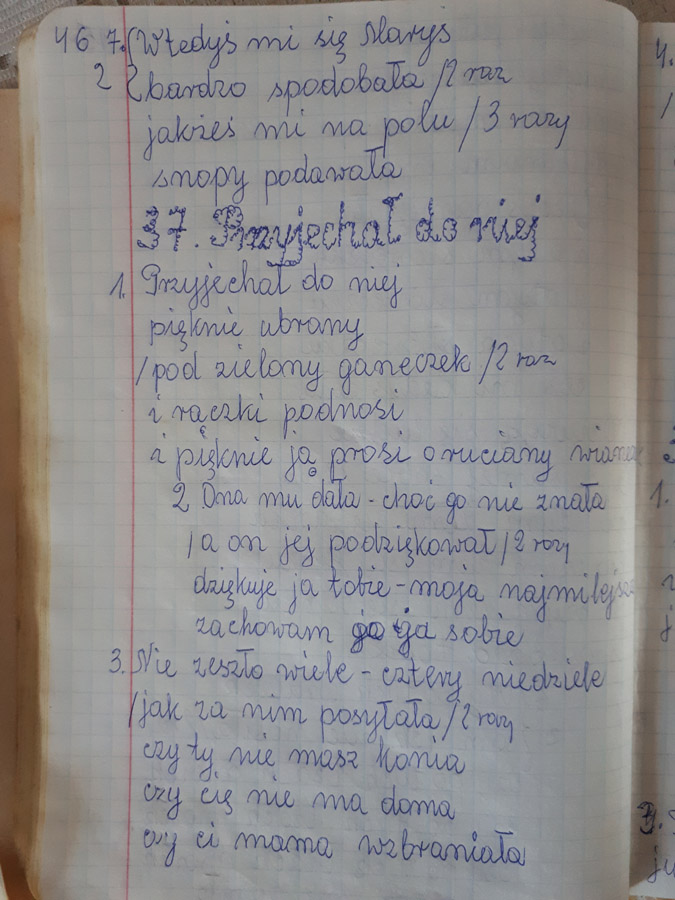 46 7. Wtedyś mi się Maryś
2 bardzo spodobała /2 raz
jakżeś mi na polu /3 razy
snopy podawała
37. Przyjechał do niej
1. Przyjechał do niej
pięknie ubrany
/pod zielony ganeczek /2 raz
i rączki podnosi
i pięknie ją prosi o ruciany
2. Ona mu dała - choć go nie znała
/a on jej podziękował /2 razy
dziękuje ja tobie - moja najmilejsza
zachowam ga sobie
3. Nie zeszło wiele - cztery niedziele
/jak za nim posyłała /2 razy
czy ty nie masz konia
czy cię nie ma doma
czy ci mama wzbraniała